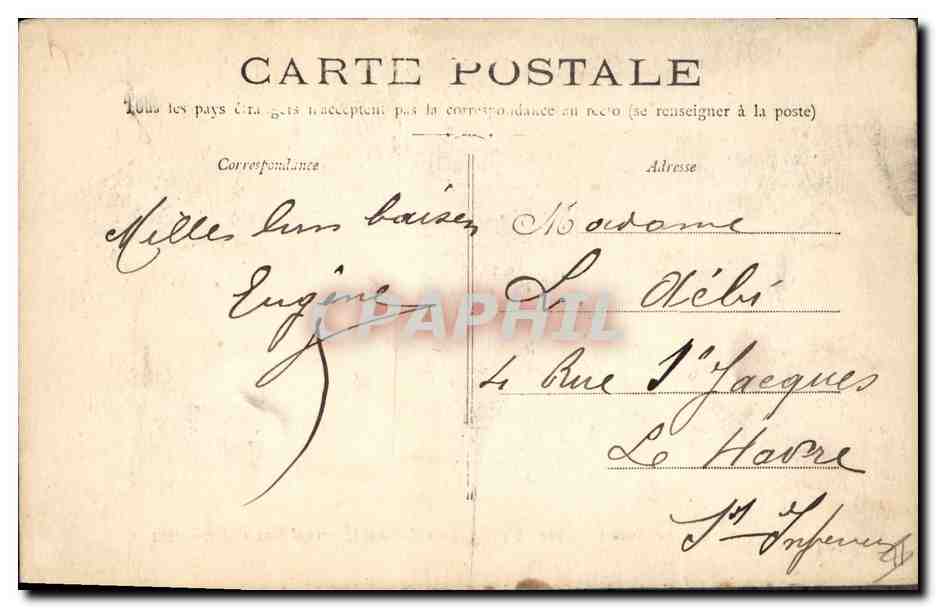 CARTE POSTALE
Tous les pays étrangers n'acceptent pas la correspondance au recto (se renseigner à la poste)
Correspondance
Adresse
Milles bons baisers
Eugène
Madame
Le débi
4 Rue St Jacques
Le Havre
Sne Inférieure
CPAPHIL